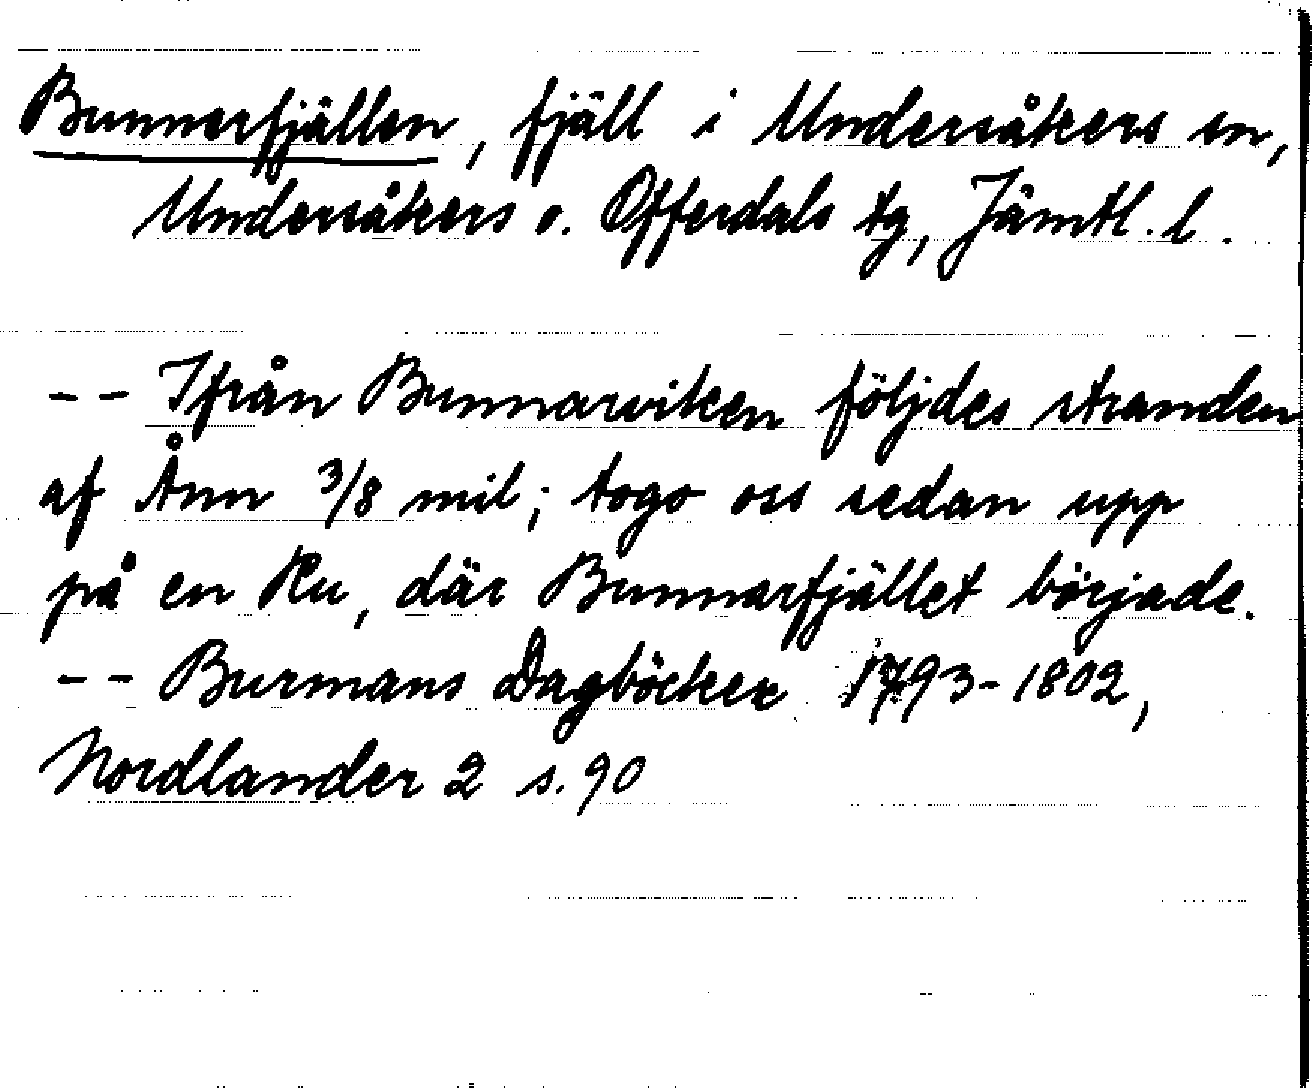 Bunnerfjällen, fjäll i Undersåkers sn,
Undersåkers o. Offerdals tg, Jämtl. l.
-- Ifrån Bunnarviken följdes stranden
af Ånn 3/8 mil; togo oss sedan upp
på en Ru, där Bunnarfjället började.
-- Burmans Dagböcker 1793-1802,
Nordlander 2 s. 90